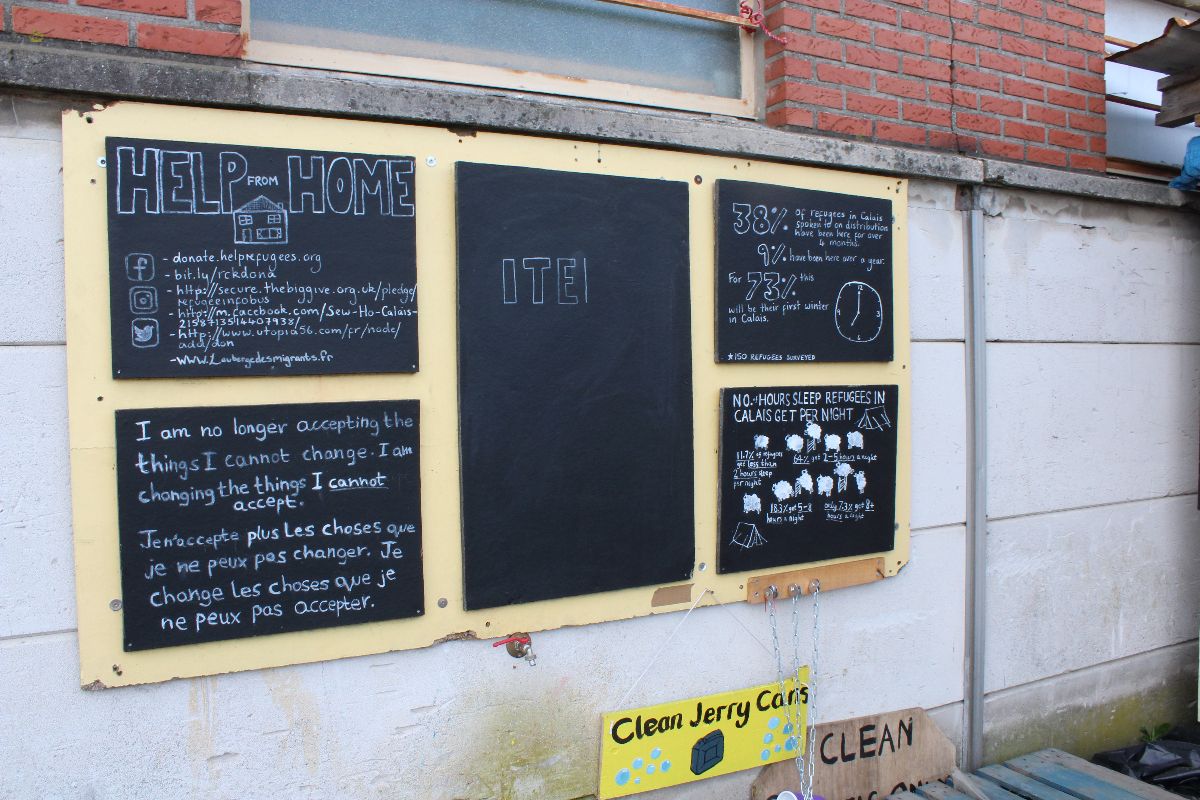 HELP FROM HOME
- donate.helprefugees.org
- bit.ly/rckdona
- http://secure.thebiggive.org.uk/pledge/
refugeeinfobus
- http://m.facebook.com/Sew-Ho-Calais-
2158413514407938/
- http://www.utopia56.com/fr/node/
add/don
-WWW.Laubergedesmigrants.fr
I am no longer accepting the
things I cannot change. I am
changing the things I cannot
accept.
Je n'accepte plus Les choses que
je ne peux pas changer. Je
change les choses que je
ne peux pas accepter.
ITEI
38% of refugees in Calais
spoken to on distribution
have been here for over
4 months.
9% have been here over a year.
For 73% this
will be their first winter
in Calais.
12
★150 REFUGEES SURVEYED
NO. of HOURS SLEEP REFUGEES IN
CALAIS GET PER NIGHT
11.7% of refugees
get less than
2 hours sleep
per night
64% get 2-5 hours a night
18.3% get 5-8
hours a night
only 7.3% get 8+
hours a night
Clean Jerry Cans
CLEAN